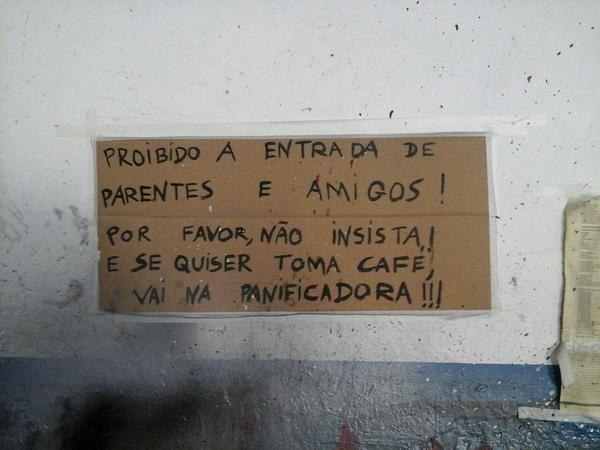 PROIBIDO A ENTRADA DE
PARENTES E AMIGOS!
POR FAVOR, NÃO INSISTA!
E SE QUISER TOMA CAFÉ,
VAI NA PANIFICADORA!!!